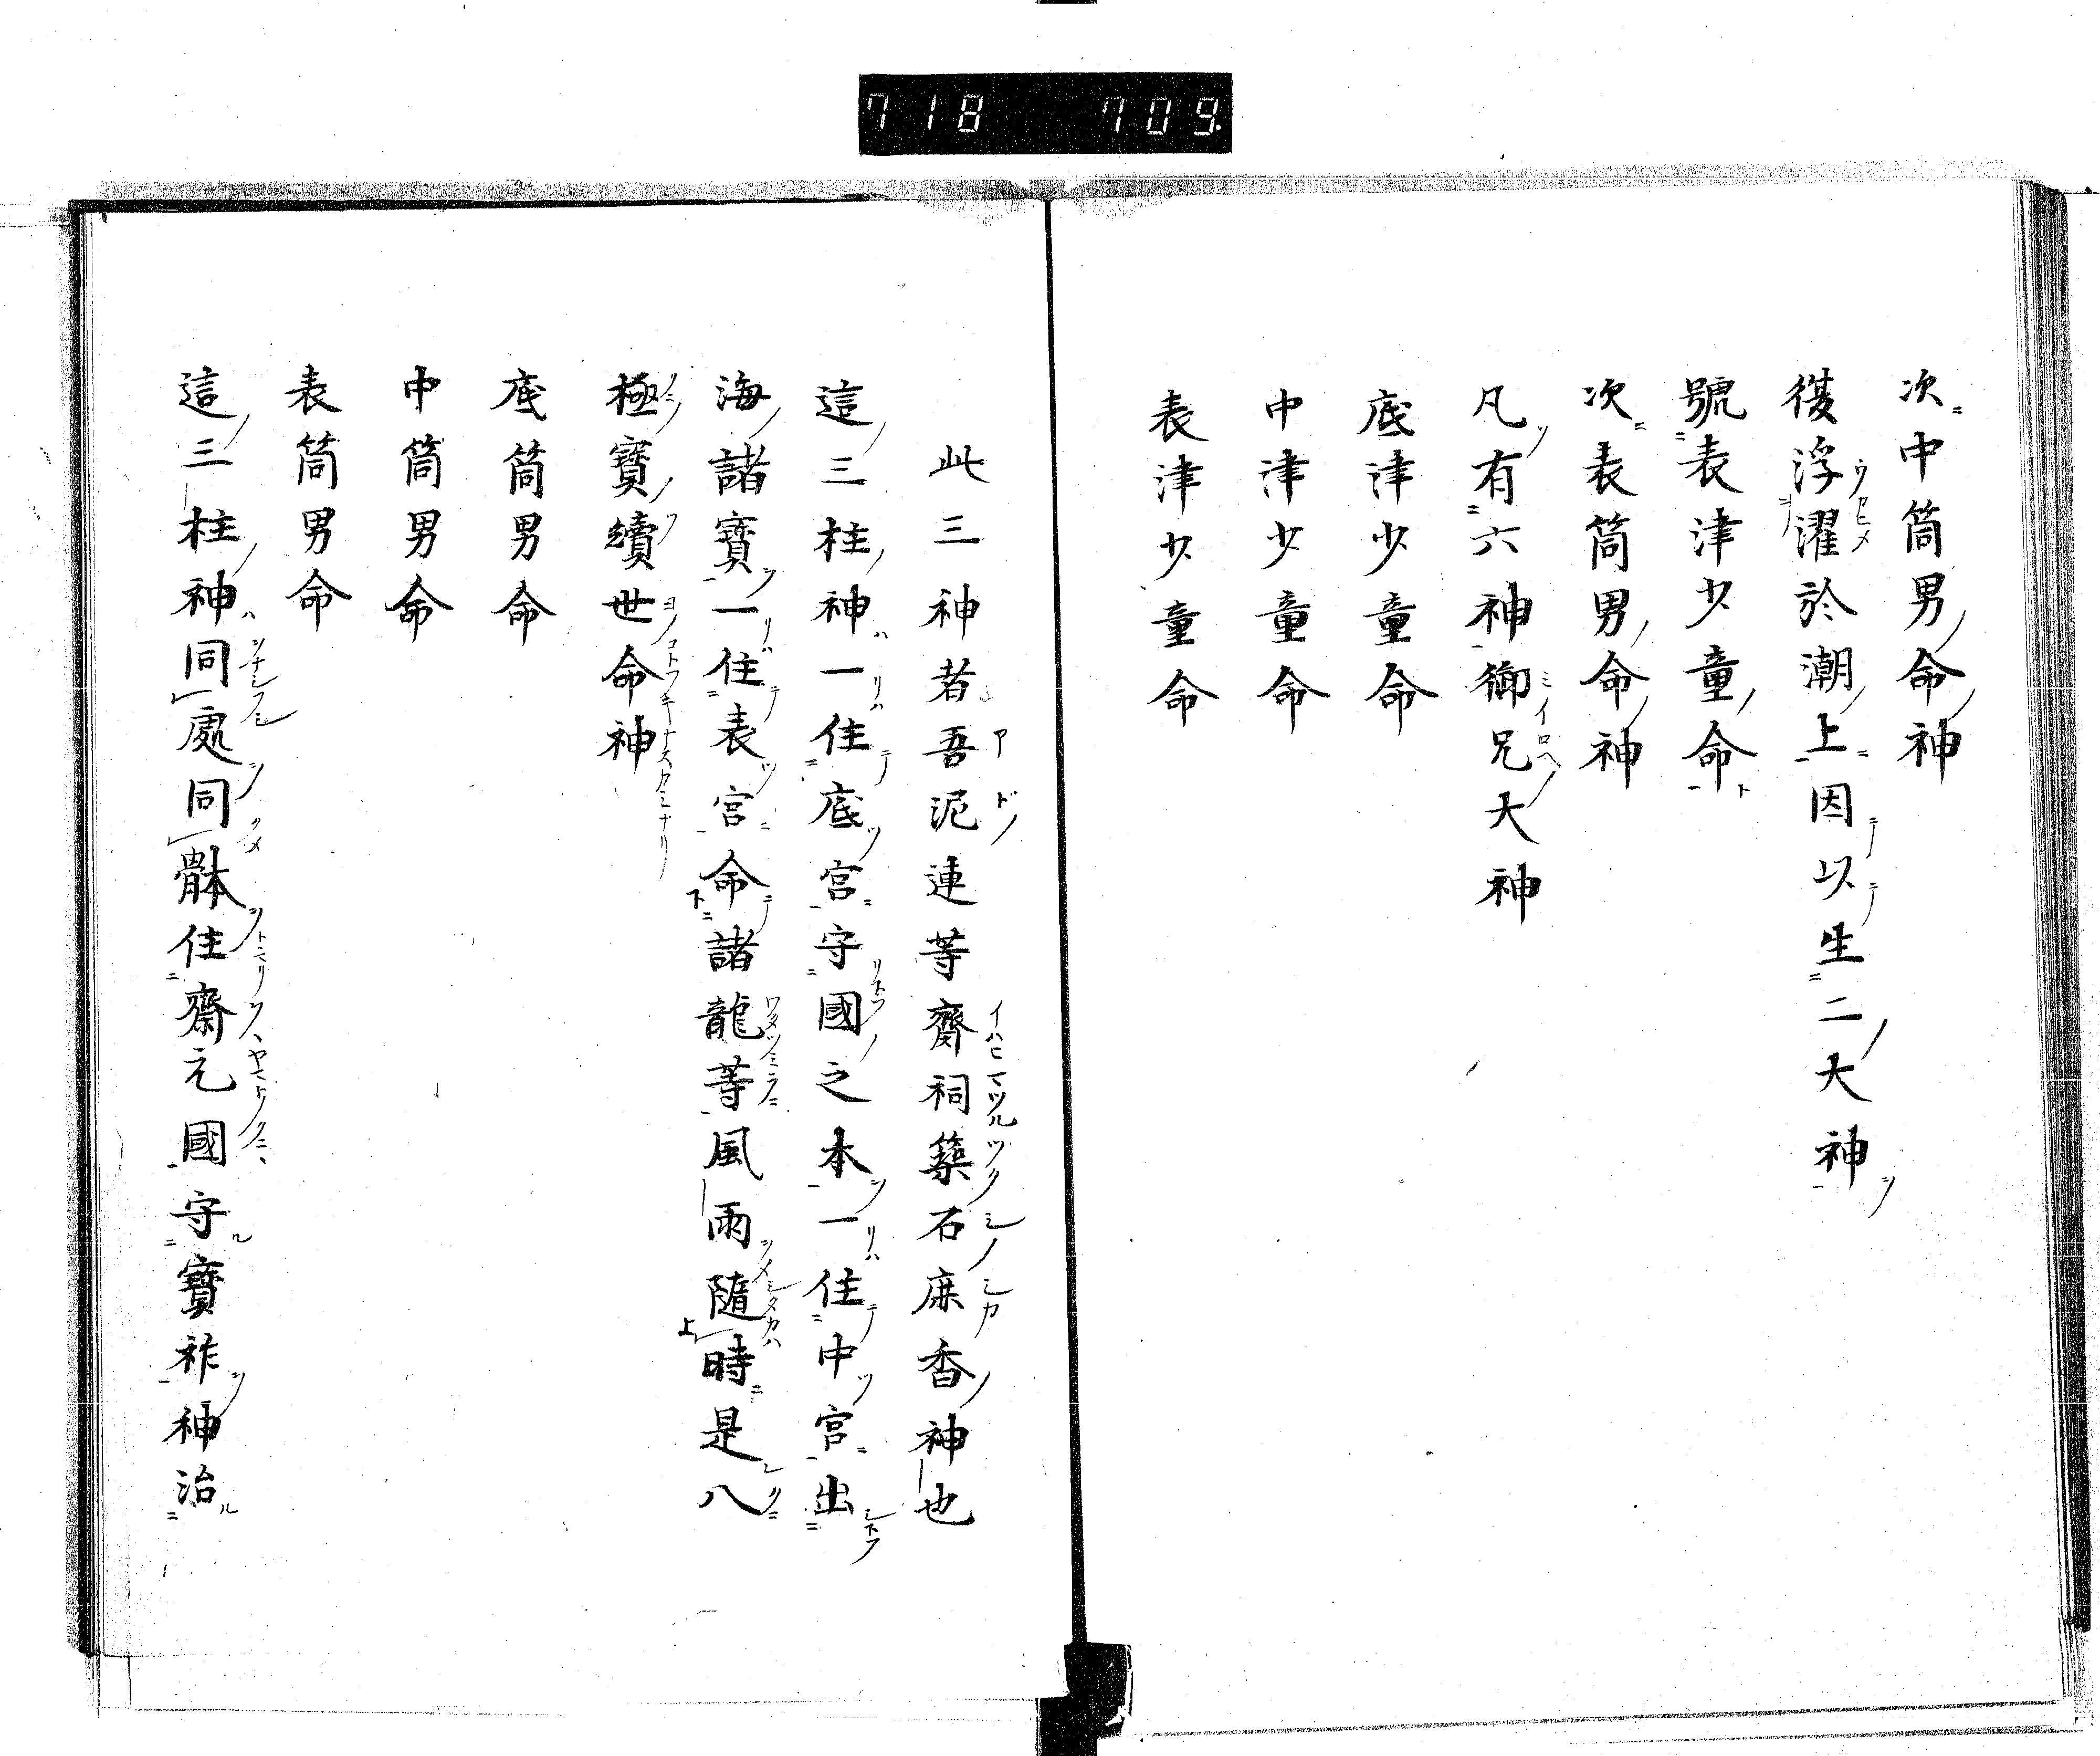 718 709.
次中筒男命神
復浮濯於潮上因以生二大神
號表津少童命
次表筒男命神
凡有六神御兄大神
底津少童命
中津少童命
表津少童命
此三神者吾泥連等齋祠築石鹿香神也
這三柱神一住底宮守國之本一住中宮出
海諸寶一住表宮命諸龍等風雨隨時是八
極寶續世命神
底筒男命
中筒男命
表筒男命
這三柱神同處同體住齋元國守寶祚神治